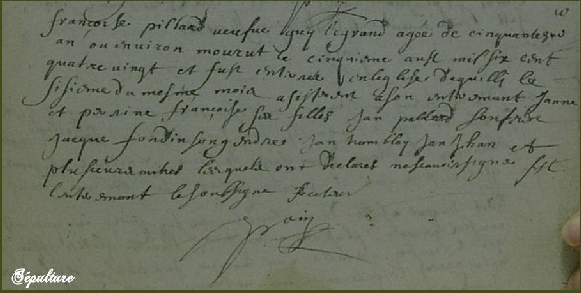 françoise pillard veufve guy legrand agée de cinquante
an ou environ mourut le cinqieme aust mil six cent
quatre vingt et fust enterree en leglese deguille le
sisieme du mesme mois asisterent a son enterremant Janne
et perine françoise ses filles Jan pillard son frere
Jacque fondin son gendre Jan humblot Jan Jhan et
plusieurs autres lesquels ont declares ne scavoir signe fist
lenteremant le soubsigne
Sépulture